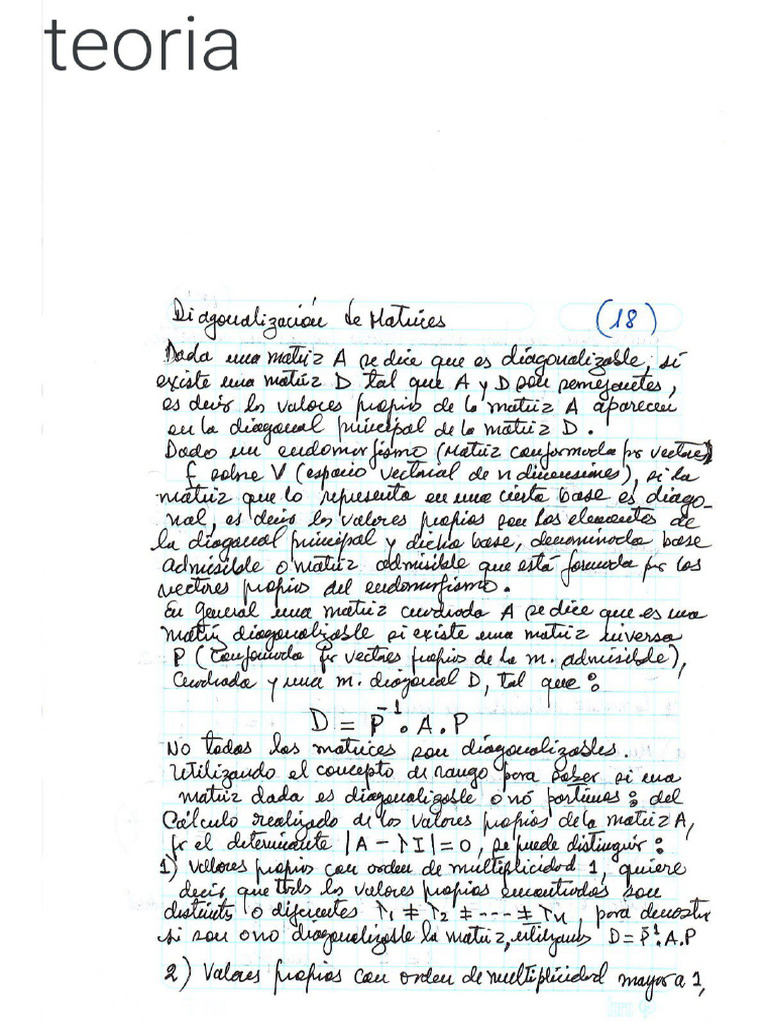 teoria
Diagonalización de Matrices (18)
Dada una matriz A se dice que es diagonalizable, si
existe una matriz D tal que A y D son semejantes,
es decir los valores propios de la matriz A aparecen
en la diagonal principal de la matriz D.
Dado un endomorfismo (Matriz conformada por vectores)
f sobre V (espacio vectorial de n dimensiones), si la
matriz que lo representa en una cierta base es diago-
nal, es decir los valores propios son los elementos de
la diagonal principal y dicha base, denominada base
admisible o matriz admisible que está formada por los
vectores propios del endomorfismo.
En general una matriz cuadrada A se dice que es una
matriz diagonalizable si existe una matriz inversa
P (conformada por vectores propios de la m. admisible),
cuadrada y una m. diagonal D, tal que:
D = P⁻¹. A . P
No todas las matrices son diagonalizables.
Utilizando el concepto de rango para saber si una
matriz dada es diagonalizable o nó partimos: del
Cálculo realizado de los valores propios de la matriz A,
por el determinante |A - λI| = 0, se puede distinguir:
1) Valores propios con orden de multiplicidad 1, quiere
decir que todos los valores propios encontrados son
distintos o diferentes λ1 ≠ λ2 ≠ --- ≠ λn, para demostrar
si son o no diagonalizable la matriz, utilizamos D = P⁻¹. A . P
2) Valores propios con orden de multiplicidad mayor a 1,